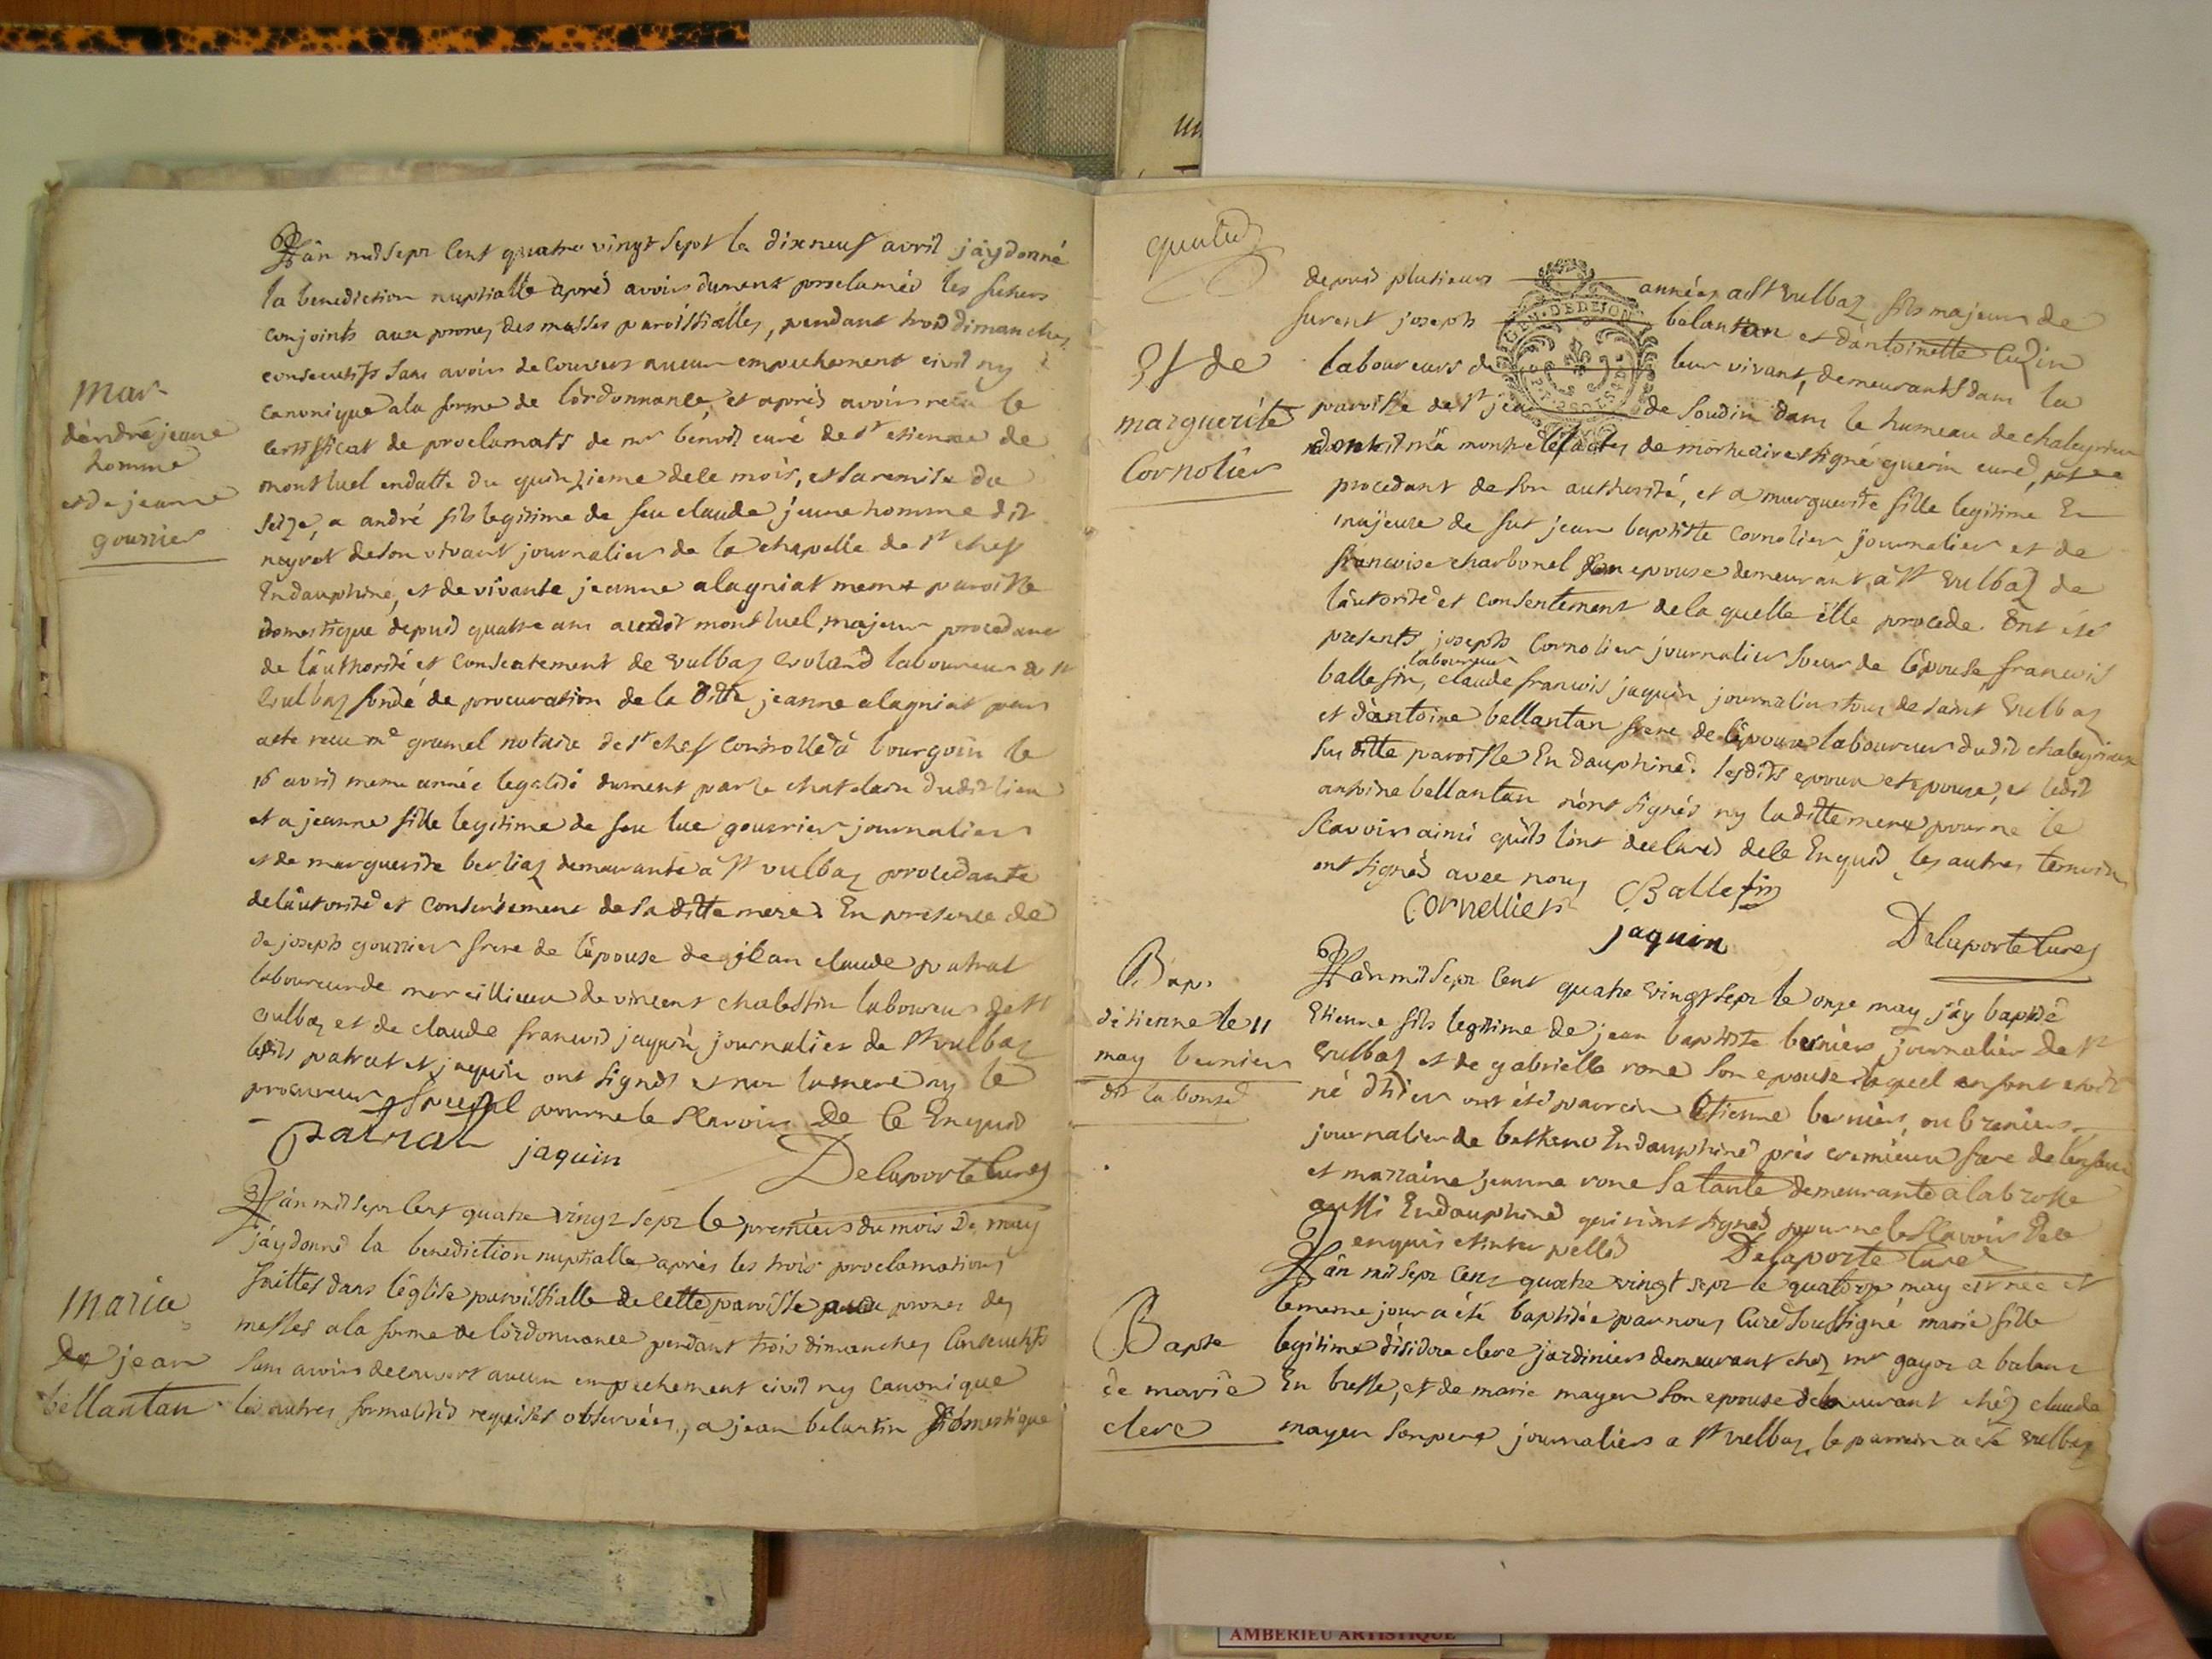 Mar
d'andré jeune
homme
et de jeanne
gourrier
L'an mil sept cent quatre vingt sept le dixneuf avril j'ay donné
la benediction nuptialle après avoir dument proclamés les futurs
conjoints aux prones des messes paroissialles, pendant trois dimanches
consecutifs sans avoir decouvert aucun empechement civil ny
canonique a la forme de l'ordonnance, et après avoir reçu le
certifficat de proclamats de mr benoit curé de st etienne de
montluel en datte du quinzieme de ce mois, et la remise du
seize, a andré fils legitime de feu claude jeune homme dit
neyret de son vivant journalier de la chapelle de st chef
En dauphiné, et de vivante jeanne alagniat meme paroisse
domestique depuis quatre ans audit montluel, majeur procedant
de l'authorité et consentement de vulbaz laboureur a st
vulbaz fondé de procuration de la ditte jeanne alagniat par
acte recu me grumel notaire de st chef controllé à bourgoin le
16 avril meme année legalisé dument par le chatelain dudit lieu
et a jeanne fille legitime de feu luc gourrier journalier
et de marguerite berliaz demeurante à st vulbaz procedante
de l'autorité et consentement de sa ditte mere. En presence de
de joseph gourrier frere de l'épouse de jean claude patrat
laboureur de marcillieux de vincent chalestin laboureur de st
vulbaz et de claude francois jaquin, journalier de st vulbaz
lesdits patrat et jaquin ont signés et non la mere ny le
procureur special pour ne le scavoir De Ce Enquis
patrat jaquin
Delaporte curé
maria
De jean
bellantan
L'an mil sept cent quatre vingt sept le premier du mois De may
j'ay donné la benediction nuptialle après les trois proclamations
faittes dans l'église paroissialle de cette paroisse aux prones des
messes a la forme de l'ordonnance pendant trois dimanches consecutifs
sans avoir decouvert aucun empechement civil ny canonique
les autres formalités requises observées, a jean belantin domestique
GEN. DE DIJON
Et de
marguerite
Cornolier
depuis plusieurs années a St vulbaz fils majeur de
furent joseph belantan et d'antoinette cuzin
laboureurs de leur vivant, demeurants dans la
paroisse de st jean de Soudin dans le hameau de chaleyrieu
dont il m'a montré les actes de mortuaire signé guerin curé,
procedant de son authorité, et a marguerite fille legitime Et
majeure de fut jean baptiste cornolier journalier et de
francoise charbonel son epouse demeurant à st vulbaz de
l'autorité et consentement de la quelle elle procede. Ont été
presents joseph Cornolier journalier soeur de l'épouse francois
laboureur
ballesin, claude francois jaquin journalier tous de saint vulbaz
et d'antoine bellantan frere de l'époux laboureur dudit chaleyrieu
sus ditte paroisse En dauphiné. lesdits epoux et epouse, et ledit
antoine bellantan n'ont signés ny la ditte mere pour ne le
scavoir ainsi qu'ils l'ont declarés de ce Enquis les autres temoins
ont signés avec nous
Cornellier Ballesin
jaquin Delaporte Curé
Bap.
d'etienne le 11
may bernier
dit la bonté
L'an mil sept cent quatre vingt sept le onze may j'ay baptisé
Etienne fils legitime de jean baptiste bernier journalier de st
vulbaz et de gabrielle rone son epouse lequel enfant etoit
né d'hier ont été parrein Etienne bernier, ou brenier
journalier de En dauphiné près cremieux frere de l'enfant
et marraine jeanne rone sa tante demeurante a la brosse
aussi En dauphiné qui n'ont signés pour ne le scavoir De ce
enquis et interpellés Delaporte Curé
Bapte
de marie
clerc
L'an mil sept cent quatre vingt sept le quatorze may est née et
le meme jour a été baptisée par nous Curé soussigné marie fille
legitime d'isidore clerc jardinier demeurant chez mr gayot a balan
En bresse, et de marie mayer son epouse demeurant chez claude
mayer son pere journalier a st vulbaz, le parrein a été vulbaz
AMBERIEU ARTISTIQUE